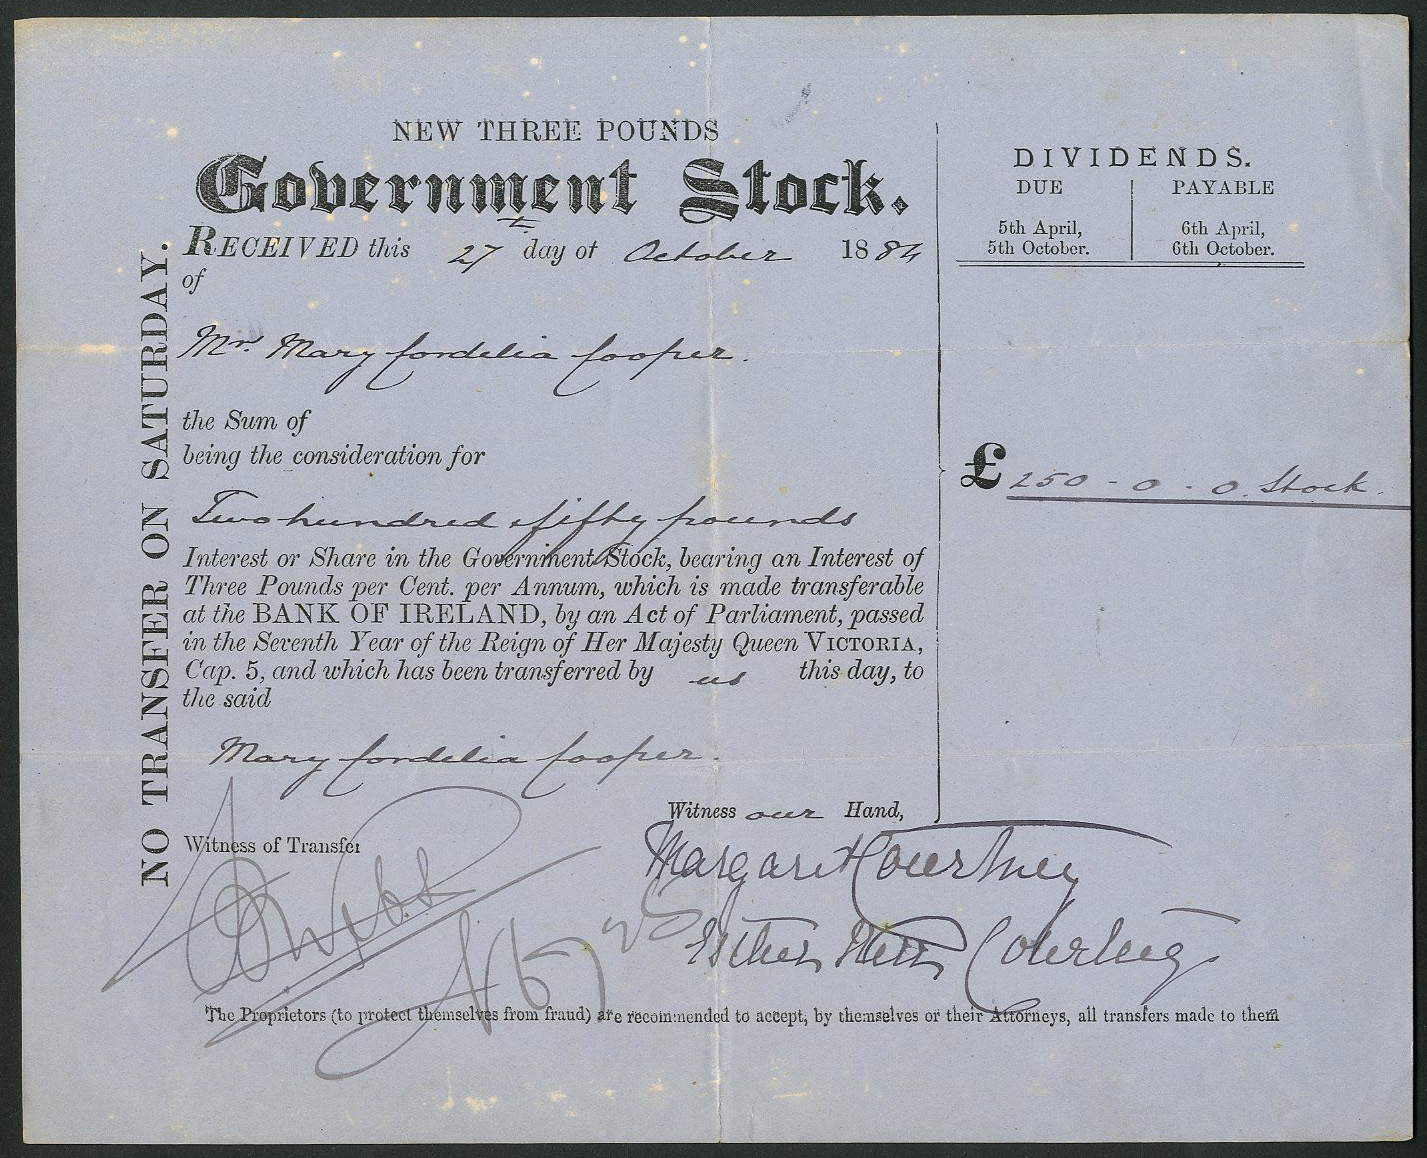 NEW THREE POUNDS
Government Stock.
RECEIVED this 27th day of October 1884
of
Mrs. Mary Cordelia Cooper.
the Sum of
being the consideration for
Two hundred & fifty pounds
Interest or Share in the Government Stock, bearing an Interest of
Three Pounds per Cent. per Annum, which is made transferable
at the BANK OF IRELAND, by an Act of Parliament, passed
in the Seventh Year of the Reign of Her Majesty Queen VICTORIA,
Cap. 5, and which has been transferred by us this day, to
the said
Mary Cordelia Cooper.
Witness our Hand,
Witness of Transfer
Margaret Courtney
Esther Courtney
The Proprietors (to protect themselves from fraud) are recommended to accept, by themselves or their Attorneys, all transfers made to them
NO TRANSFER ON SATURDAY.
DIVIDENDS.
DUE PAYABLE
5th April, 6th April,
5th October. 6th October.
£250-0-0. Stock.